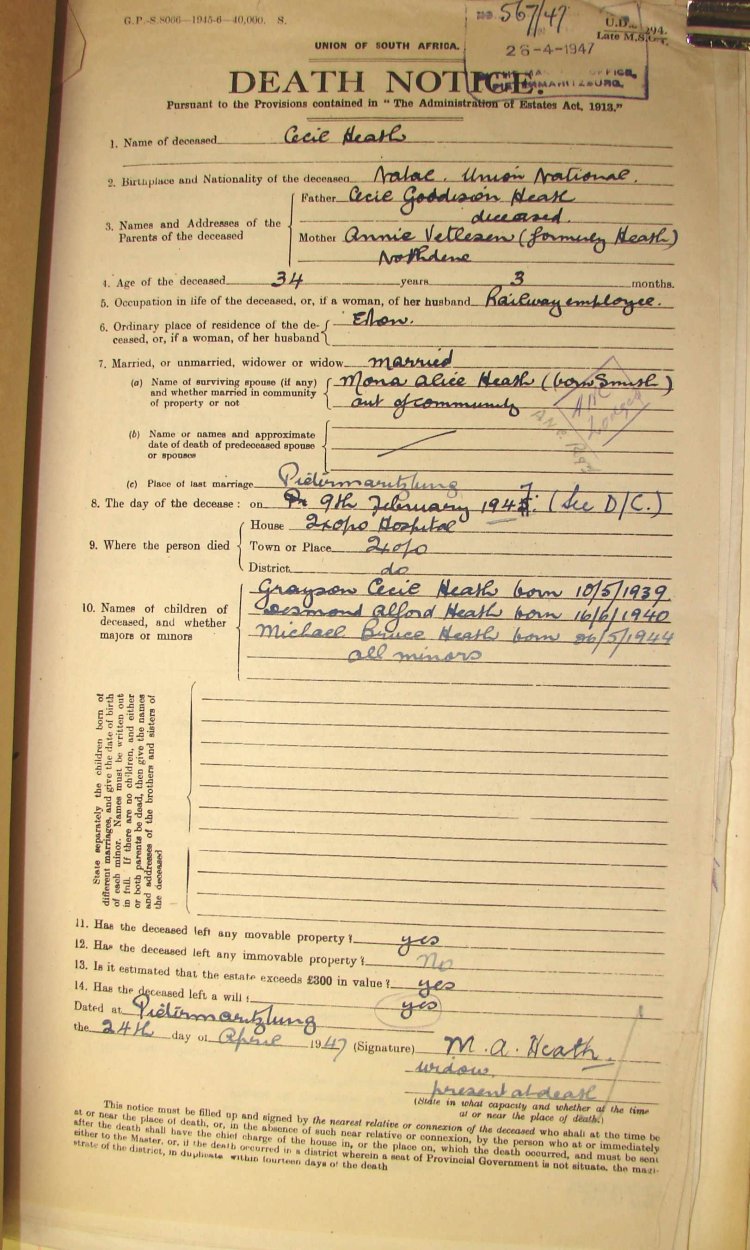 G.P.-S.8066—1945-6—40,000. S.
No. 567/47
U.D. 294.
Late M.S.C.
26-4-1947
UNION OF SOUTH AFRICA.
DEATH NOTICE.
Pursuant to the Provisions contained in "The Administration of Estates Act, 1913."
1. Name of deceased Cecil Heath
2. Birthplace and Nationality of the deceased Natal. Union National.
3. Names and Addresses of the Parents of the deceased
Father Cecil Goddison Heath
deceased.
Mother Annie Vetlesen (formerly Heath)
Northdene
4. Age of the deceased 34 years 3 months.
5. Occupation in life of the deceased, or, if a woman, of her husband Railway employee.
6. Ordinary place of residence of the de-
ceased, or, if a woman, of her husband
Elton.
7. Married, or unmarried, widower or widow married
(a) Name of surviving spouse (if any)
and whether married in community
of property or not
Mona Alice Heath (born Smith)
out of community
Lodged
(b) Name or names and approximate
date of death of predeceased spouse
or spouses
(c) Place of last marriage Pietermaritzburg
8. The day of the decease: on 9th February 1947. (See D/C.)
9. Where the person died
House Ixopo Hospital
Town or Place Ixopo
District do
10. Names of children of
deceased, and whether
majors or minors
Grayson Cecil Heath born 10/5/1939
Desmond Alford Heath born 16/6/1940
Michael Bruce Heath born 26/5/1944
all minors
State separately the children born of
different marriages, and give the date of birth
of each minor. Names must be written out
in full. If there are no children, and either
or both parents be dead, then give the names
and addresses of the brothers and sisters of
the deceased
11. Has the deceased left any movable property? yes
12. Has the deceased left any immovable property? No
13. Is it estimated that the estate exceeds £300 in value? yes
14. Has the deceased left a will? yes
Dated at Pietermaritzburg
the 24th day of April 1947 (Signature) M. A. Heath.
widow.
present at death
(State in what capacity and whether at the time
at or near the place of death.)
This notice must be filled up and signed by the nearest relative or connexion of the deceased who shall at the time be
at or near the place of death, or, in the absence of such near relative or connexion, by the person who at or immediately
after the death shall have the chief charge of the house in, or the place on, which the death occurred, and must be sent
either to the Master, or, if the death occurred in a district wherein a seat of Provincial Government is not situate, the magi-
strate of the district, in duplicate within fourteen days of the death